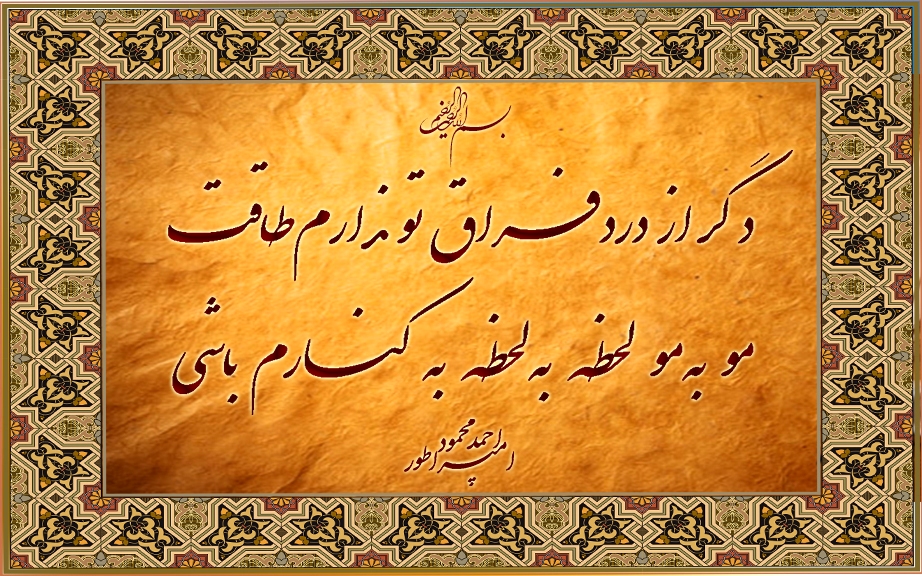 بسم الله الرحمن الرحیم
دگر از درد فراق تو ندارم طاقت
مو به مو لحظه به لحظه به کنارم باشی
احمد محمود
امپراطور